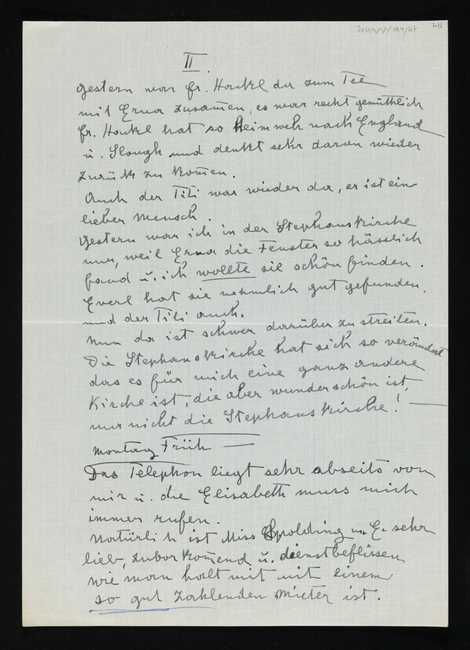 II.
Gestern war Fr. Hockl da zum Tee
mit Erna zusam̅en, es war recht gemüthlich
Fr. Hockl hat so Heimweh nach England
u. Slough und denkt sehr daran wieder
zurück zu kom̅en.
Auch der Tili war wieder da, er ist ein
lieber Mensch.
Gestern war ich in der Stephanskirche
nur, weil Erna die Fenster so hässlich
fand u. ich wollte sie schön finden.
Everl hat sie nehmlich gut gefunden.
und der Tili auch.
Nun da ist schwer darüber zu streiten.
Die Stephanskirche hat sich so verändert
das es für mich eine ganz andere
Kirche ist, die aber wunderschön ist,
nur nicht die Stephanskirche! —
Montag Früh —
Das Telephon liegt sehr abseits von
mir u. die Elisabeth muss mich
immer rufen.
Natürlich ist Miss Spolding u. E. sehr
lieb, zuvorkom̅end u. dienstbeflissen
wie man halt mit einem
so gut zahlenden Mieter ist.